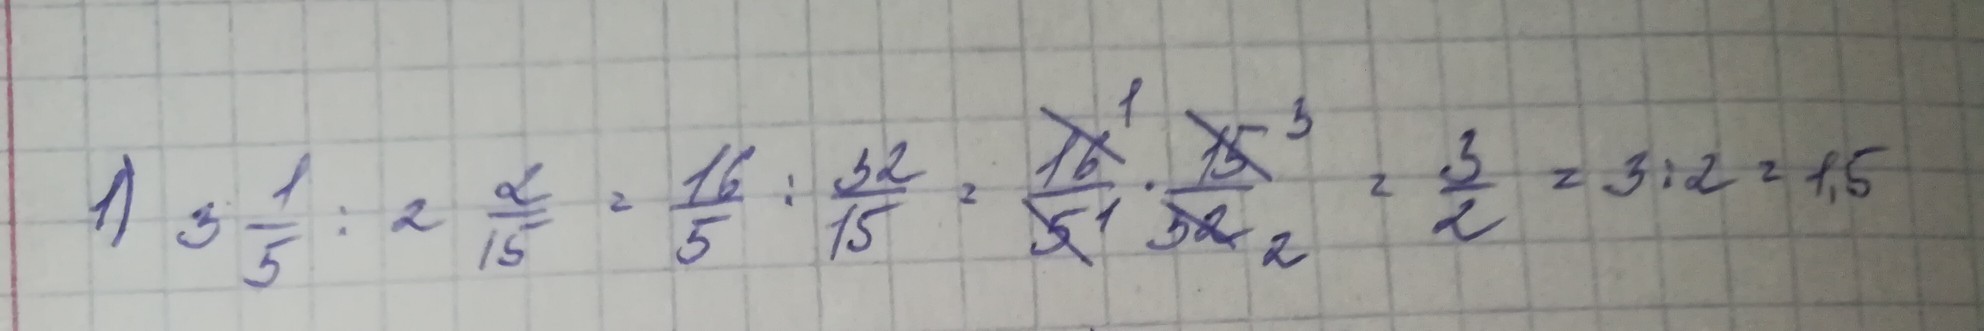 1) 3 1/5 : 2 2/15 = 16/5 : 32/15 = 16 1/5 1 · 15 3/32 2 = 3/2 = 3:2 = 1,5